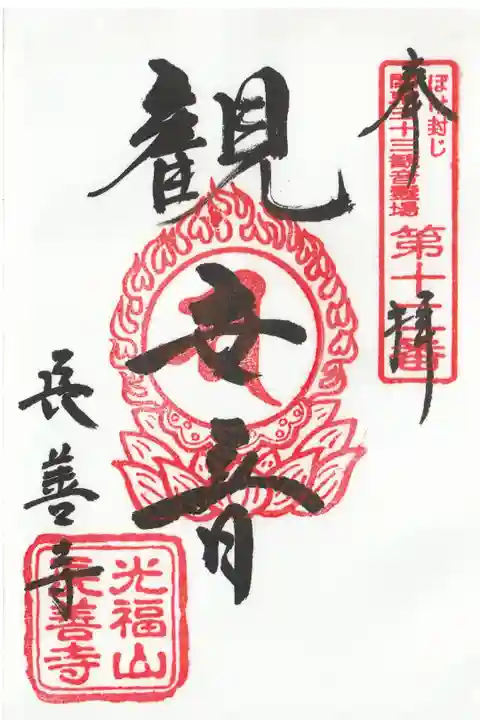 奉拝
ぼけ封じ
関東三十三観音霊場 第十 番
観世音
長善寺
光福山
長善寺